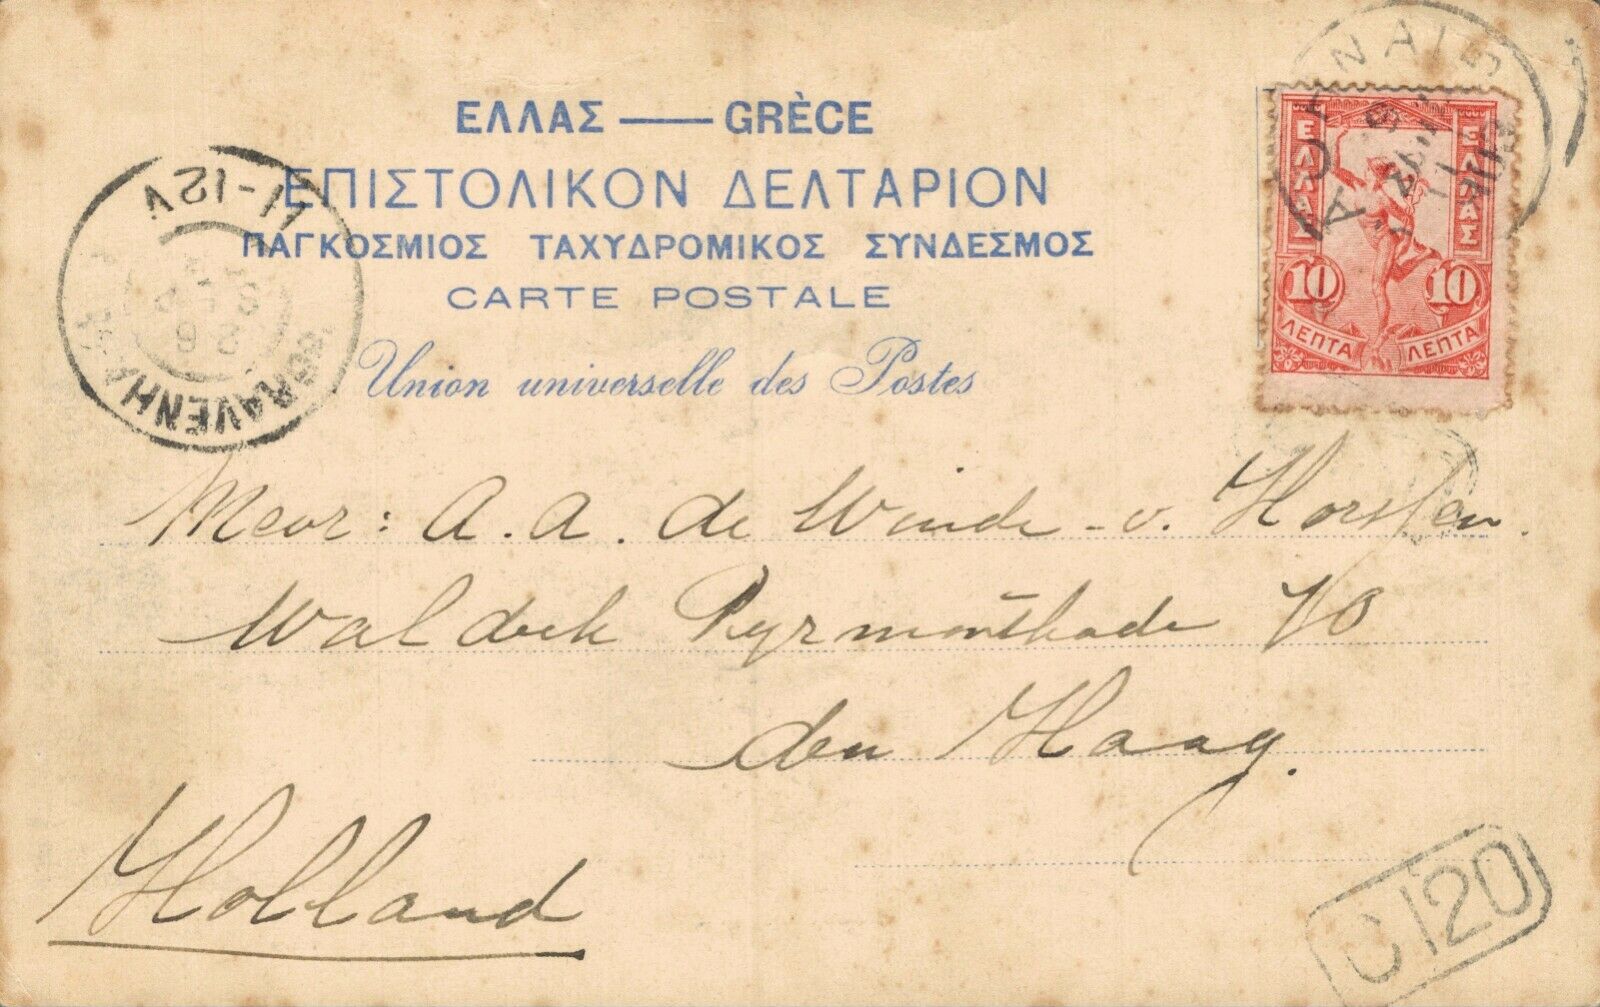 ΕΛΛΑΣ — GRÈCE
ΕΠΙΣΤΟΛΙΚΟΝ ΔΕΛΤΑΡΙΟΝ
ΠΑΓΚΟΣΜΙΟΣ ΤΑΧΥΔΡΟΜΙΚΟΣ ΣΥΝΔΕΣΜΟΣ
CARTE POSTALE
Union universelle des Postes
11-12V
ΕΛΛΑΣ ΕΛΛΑΣ
10 10
ΛΕΠΤΑ ΛΕΠΤΑ
Mevr: A. A. de Winde - v. Horsten.
Waldeck Pyrmontkade
den Haag.
Holland
C 20